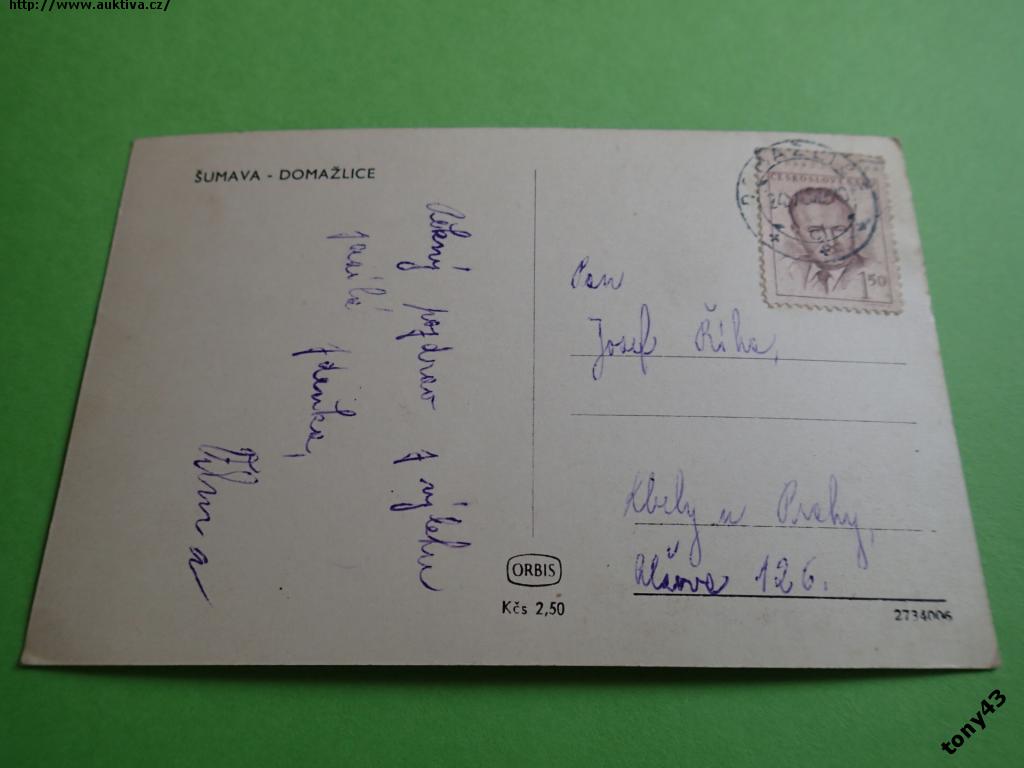 http://www.auktiva.cz/
ŠUMAVA - DOMAŽLICE
pozdrav z výletu
zasílá
Zdenka,
ČESKOSLOVENSKO
1 50
Pan
Josef Říha,
Kbely u Prahy,
Alšova 126.
ORBIS
Kčs 2,50
2734006
tony43